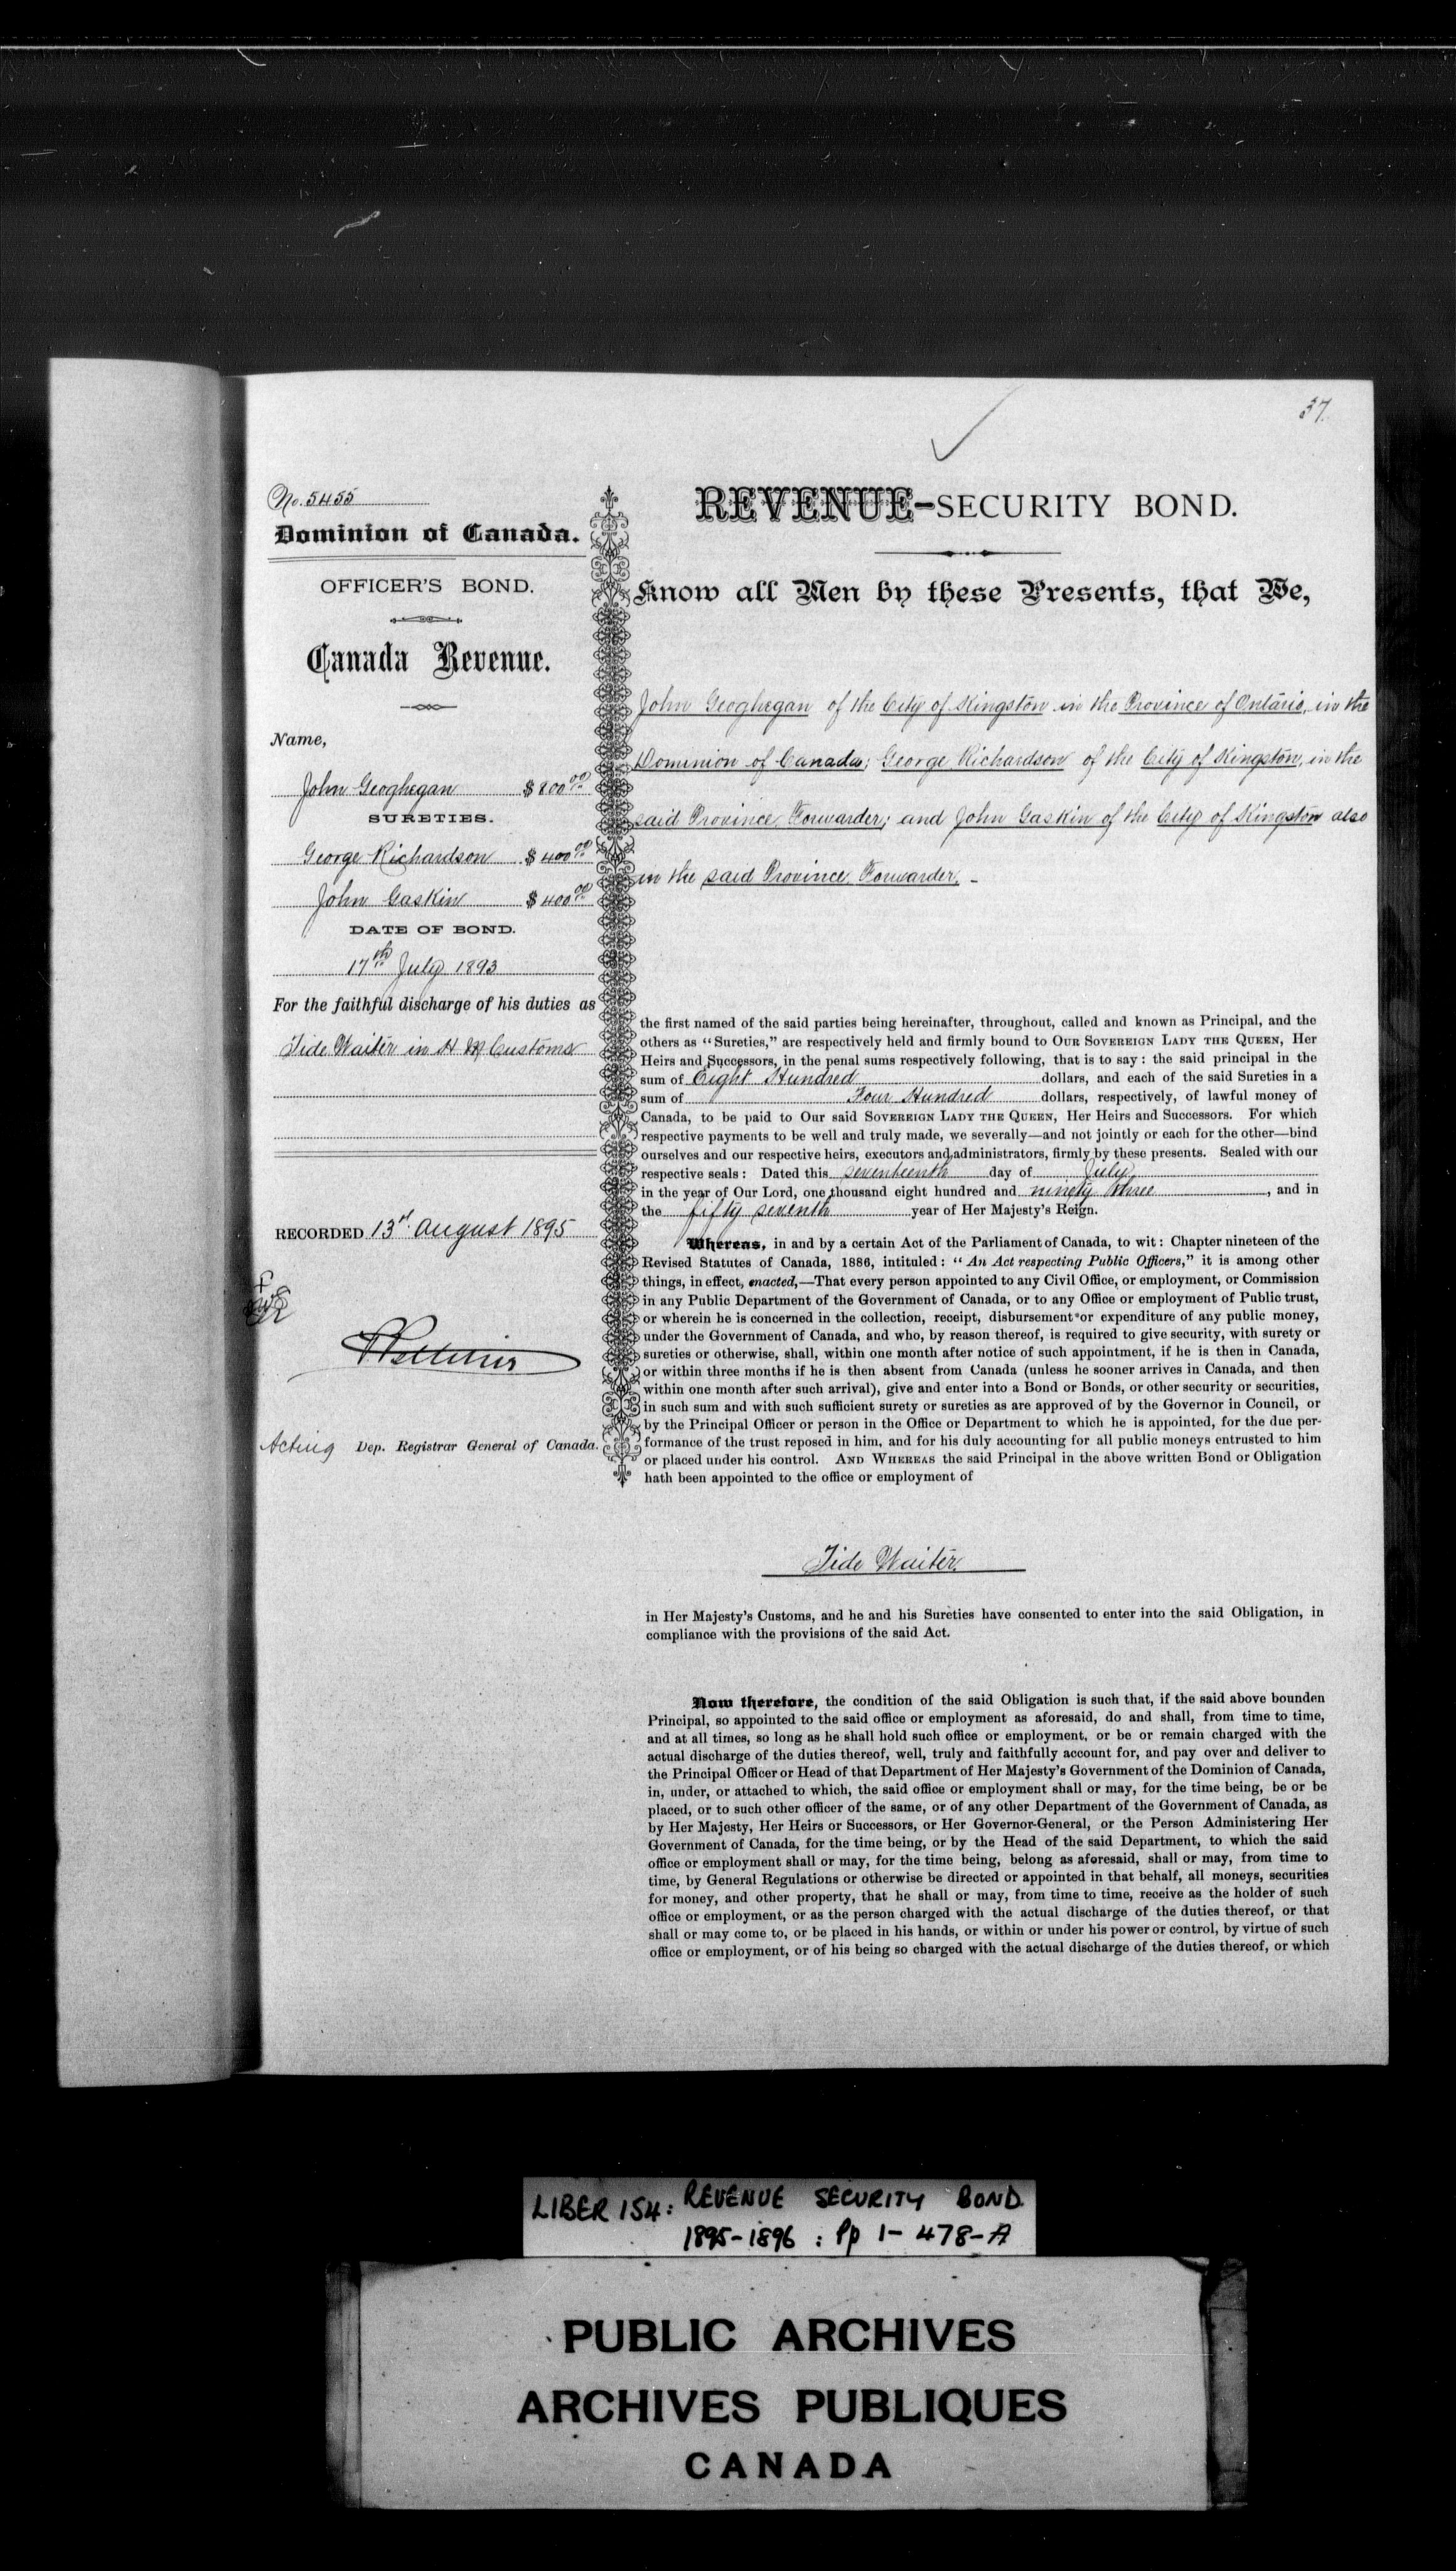 37.
No. 5455
Dominion of Canada.
OFFICER'S BOND.
Canada Revenue.
Name,
John Geoghegan $800 00
SURETIES.
George Richardson $400 00
John Gaskin $400 00
DATE OF BOND.
17th July 1893
For the faithful discharge of his duties as
Tide Waiter in H M Customs
RECORDED 13th August 1895
Acting Dep. Registrar General of Canada.
REVENUE-SECURITY BOND.
Know all Men by these Presents, that We,
John Geoghegan of the City of Kingston in the Province of Ontario, in the
Dominion of Canada; George Richardson of the City of Kingston, in the
said Province, Forwarder; and John Gaskin of the City of Kingston also
in the said Province, Forwarder. -
the first named of the said parties being hereinafter, throughout, called and known as Principal, and the
others as "Sureties," are respectively held and firmly bound to OUR SOVEREIGN LADY THE QUEEN, Her
Heirs and Successors, in the penal sums respectively following, that is to say: the said principal in the
sum of Eight Hundred dollars, and each of the said Sureties in a
sum of Four Hundred dollars, respectively, of lawful money of
Canada, to be paid to Our said SOVEREIGN LADY THE QUEEN, Her Heirs and Successors. For which
respective payments to be well and truly made, we severally—and not jointly or each for the other—bind
ourselves and our respective heirs, executors and administrators, firmly by these presents. Sealed with our
respective seals: Dated this seventeenth day of July
in the year of Our Lord, one thousand eight hundred and ninety three, and in
the fifty seventh year of Her Majesty's Reign.
Whereas, in and by a certain Act of the Parliament of Canada, to wit: Chapter nineteen of the
Revised Statutes of Canada, 1886, intituled: "An Act respecting Public Officers," it is among other
things, in effect, enacted,—That every person appointed to any Civil Office, or employment, or Commission
in any Public Department of the Government of Canada, or to any Office or employment of Public trust,
or wherein he is concerned in the collection, receipt, disbursement or expenditure of any public money,
under the Government of Canada, and who, by reason thereof, is required to give security, with surety or
sureties or otherwise, shall, within one month after notice of such appointment, if he is then in Canada,
or within three months if he is then absent from Canada (unless he sooner arrives in Canada, and then
within one month after such arrival), give and enter into a Bond or Bonds, or other security or securities,
in such sum and with such sufficient surety or sureties as are approved of by the Governor in Council, or
by the Principal Officer or person in the Office or Department to which he is appointed, for the due per-
formance of the trust reposed in him, and for his duly accounting for all public moneys entrusted to him
or placed under his control. AND WHEREAS the said Principal in the above written Bond or Obligation
hath been appointed to the office or employment of
Tide Waiter.
in Her Majesty's Customs, and he and his Sureties have consented to enter into the said Obligation, in
compliance with the provisions of the said Act.
Now therefore, the condition of the said Obligation is such that, if the said above bounden
Principal, so appointed to the said office or employment as aforesaid, do and shall, from time to time,
and at all times, so long as he shall hold such office or employment, or be or remain charged with the
actual discharge of the duties thereof, well, truly and faithfully account for, and pay over and deliver to
the Principal Officer or Head of that Department of Her Majesty's Government of the Dominion of Canada,
in, under, or attached to which, the said office or employment shall or may, for the time being, be or be
placed, or to such other officer of the same, or of any other Department of the Government of Canada, as
by Her Majesty, Her Heirs or Successors, or Her Governor-General, or the Person Administering Her
Government of Canada, for the time being, or by the Head of the said Department, to which the said
office or employment shall or may, for the time being, belong as aforesaid, shall or may, from time to
time, by General Regulations or otherwise be directed or appointed in that behalf, all moneys, securities
for money, and other property, that he shall or may, from time to time, receive as the holder of such
office or employment, or as the person charged with the actual discharge of the duties thereof, or that
shall or may come to, or be placed in his hands, or within or under his power or control, by virtue of such
office or employment, or of his being so charged with the actual discharge of the duties thereof, or which
LIBER 154: REVENUE SECURITY BOND
1895-1896 : Pp 1-478-A
PUBLIC ARCHIVES
ARCHIVES PUBLIQUES
CANADA